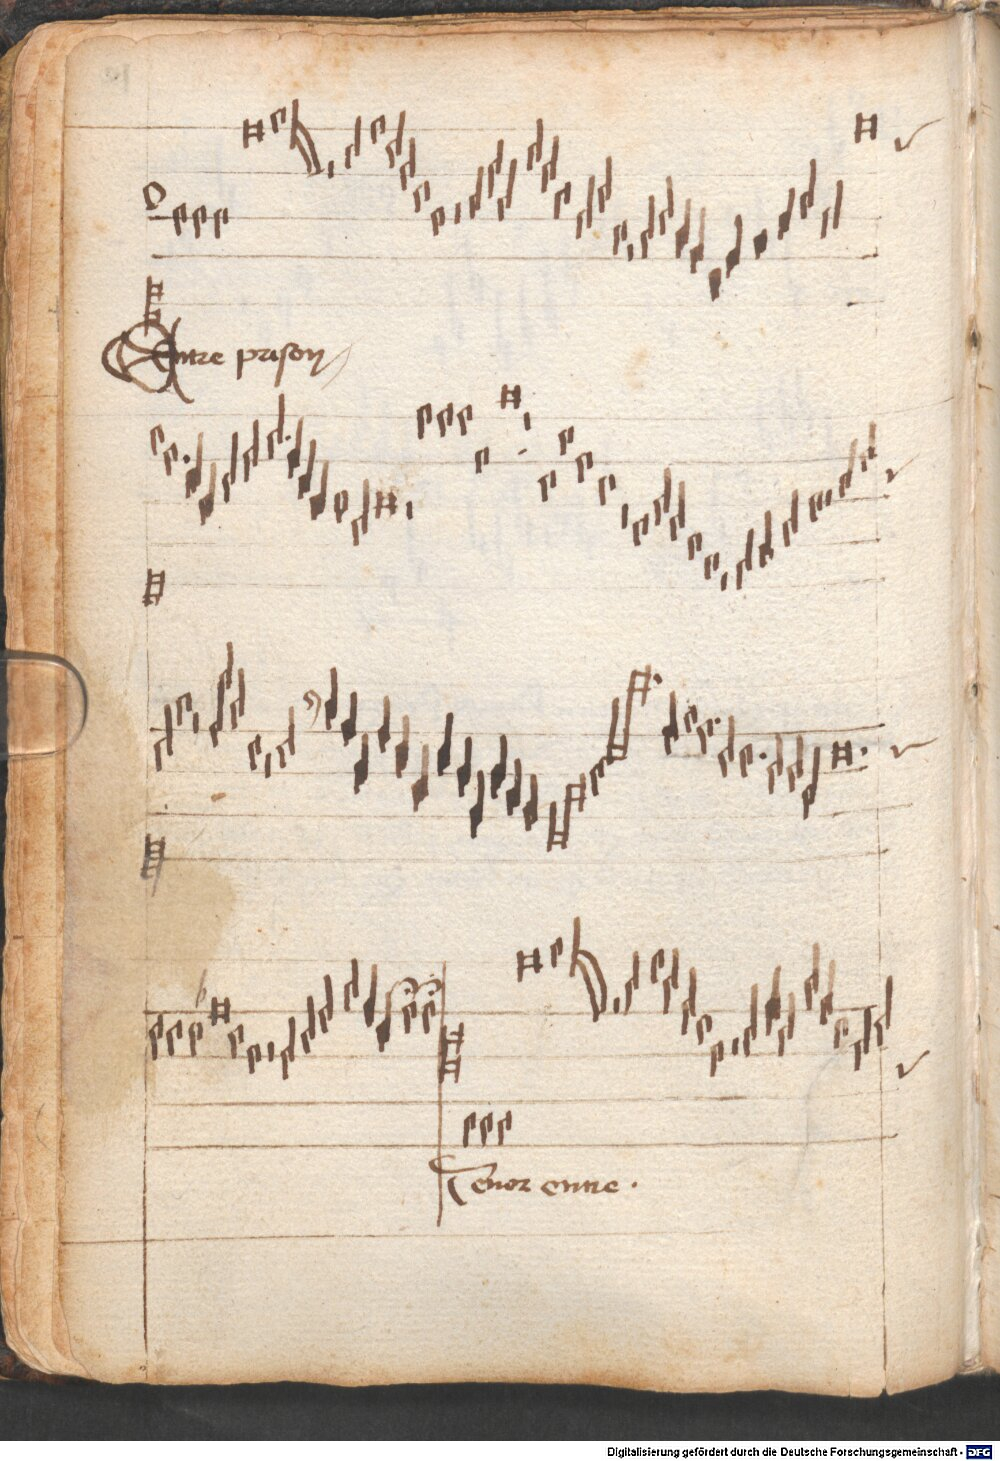 Entre prison
Tenor entre .
Digitalisierung gefördert durch die Deutsche Forschungsgemeinschaft - DFG